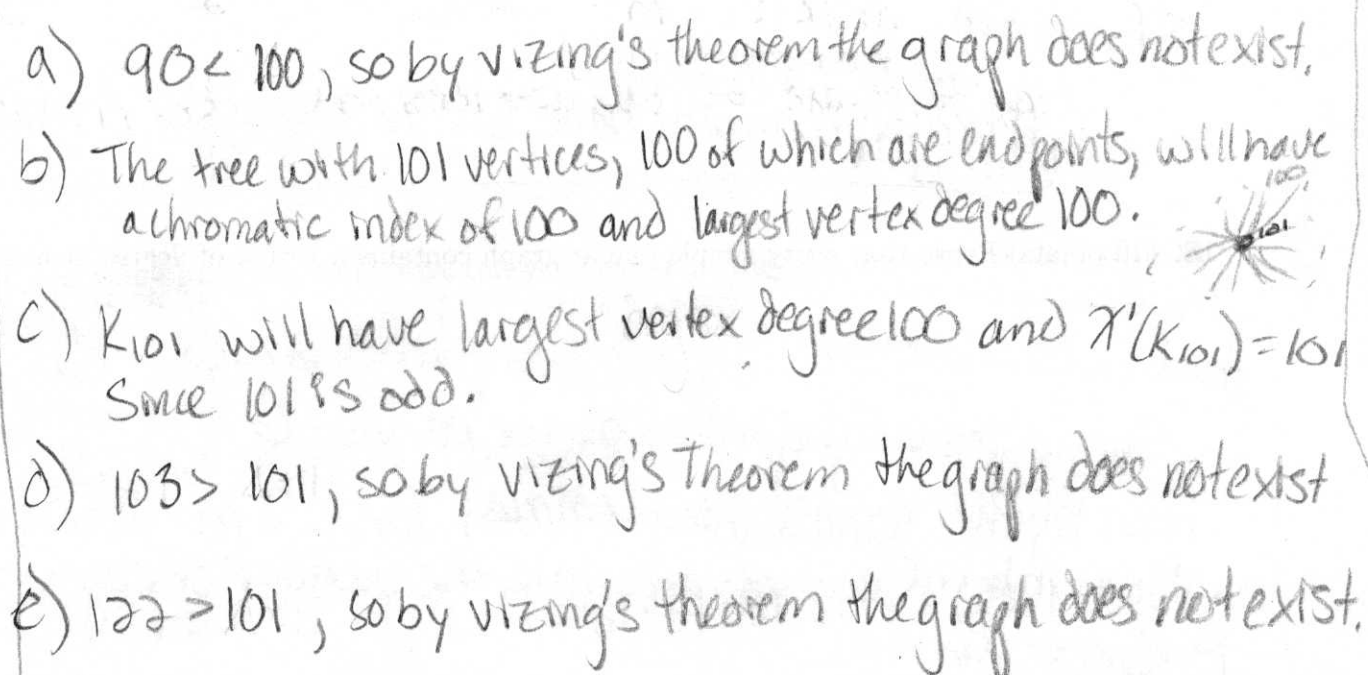 a) 90 < 100, so by vizing's theorem the graph does not exist.
b) The tree with 101 vertices, 100 of which are endpoints, will have
a chromatic index of 100 and largest vertex degree 100.
100
101
c) K₁₀₁ will have largest vertex degree 100 and χ'(K₁₀₁) = 101
Since 101 is odd.
d) 103 > 101, so by vizing's Theorem the graph does not exist
e) 122 > 101, so by vizing's theorem the graph does not exist.